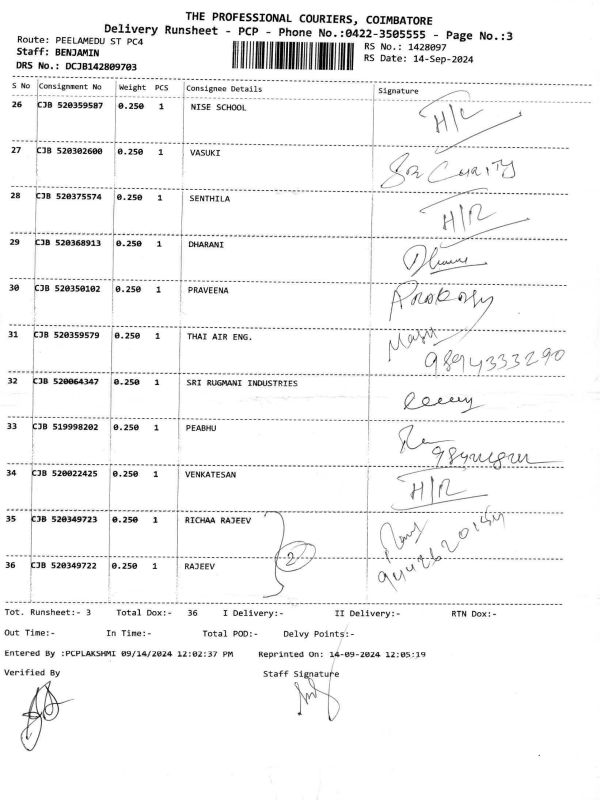 THE PROFESSIONAL COURIERS, COIMBATORE
Delivery Runsheet - PCP - Phone No.:0422-3505555 - Page No.:3
Route: PEELAMEDU ST PC4
RS No.: 1428097
Staff: BENJAMIN
RS Date: 14-Sep-2024
DRS No.: DCJB142809703
S No Consignment No Weight PCS Consignee Details Signature
26 CJB 520359587 0.250 1 NISE SCHOOL H/R
27 CJB 520302600 0.250 1 VASUKI
28 CJB 520375574 0.250 1 SENTHILA H/R
29 CJB 520368913 0.250 1 DHARANI
30 CJB 520350102 0.250 1 PRAVEENA
31 CJB 520359579 0.250 1 THAI AIR ENG.
9894333290
32 CJB 520064347 0.250 1 SRI RUGMANI INDUSTRIES
33 CJB 519998202 0.250 1 PEABHU
34 CJB 520022425 0.250 1 VENKATESAN H/R
35 CJB 520349723 0.250 1 RICHAA RAJEEV
2
36 CJB 520349722 0.250 1 RAJEEV
Tot. Runsheet:- 3 Total Dox:- 36 I Delivery:- II Delivery:- RTN Dox:-
Out Time:- In Time:- Total POD:- Delvy Points:-
Entered By :PCPLAKSHMI 09/14/2024 12:02:37 PM Reprinted On: 14-09-2024 12:05:19
Verified By Staff Signature